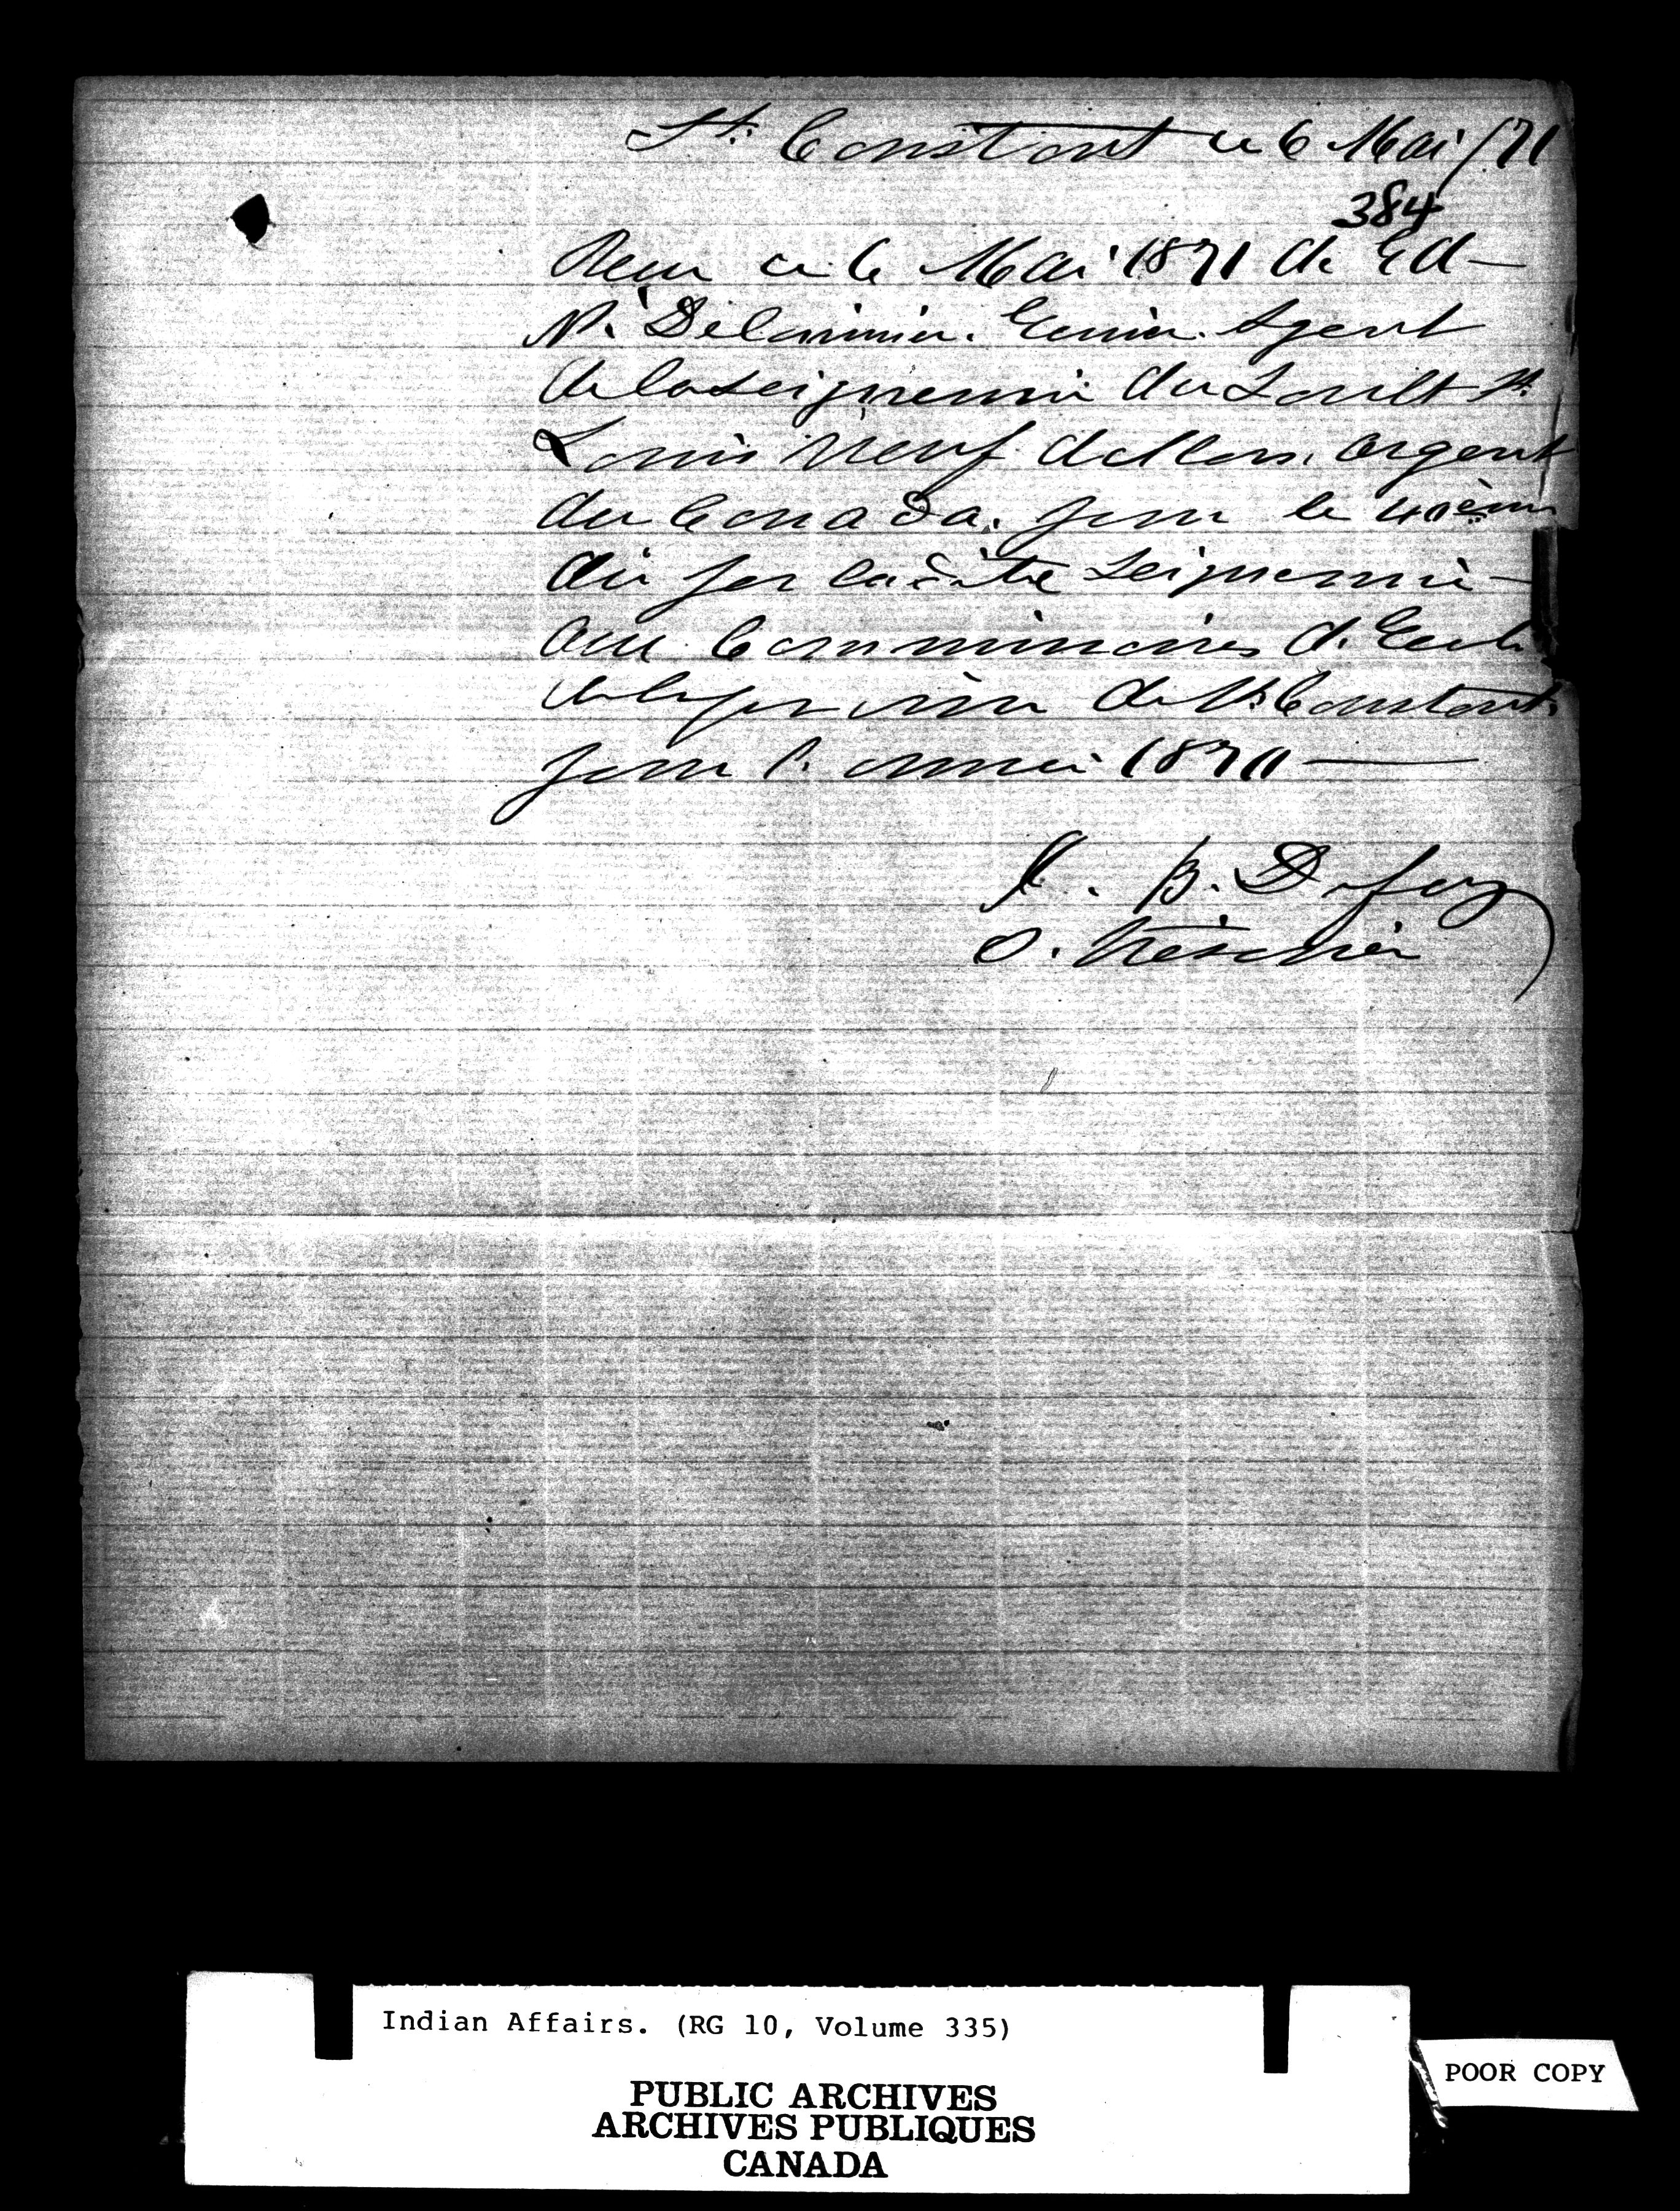 St. Constant ce 6 Mai /71
384
Recu ce 6 Mai 1871 de Ed
N. Delorimier. Ecuier. Agent
de la Seigneurie du Sault St.
Louis Neuf dollars, argent
du Canada. pour le 40ème
dû par ladite Seigneurie
aux Commissaires d'Ecole
de la paroisse de St. Constant.
pour l'année 1870
J. B. Defoy
S. Trésorier
Indian Affairs. (RG 10, Volume 335)
PUBLIC ARCHIVES
ARCHIVES PUBLIQUES
CANADA
POOR COPY